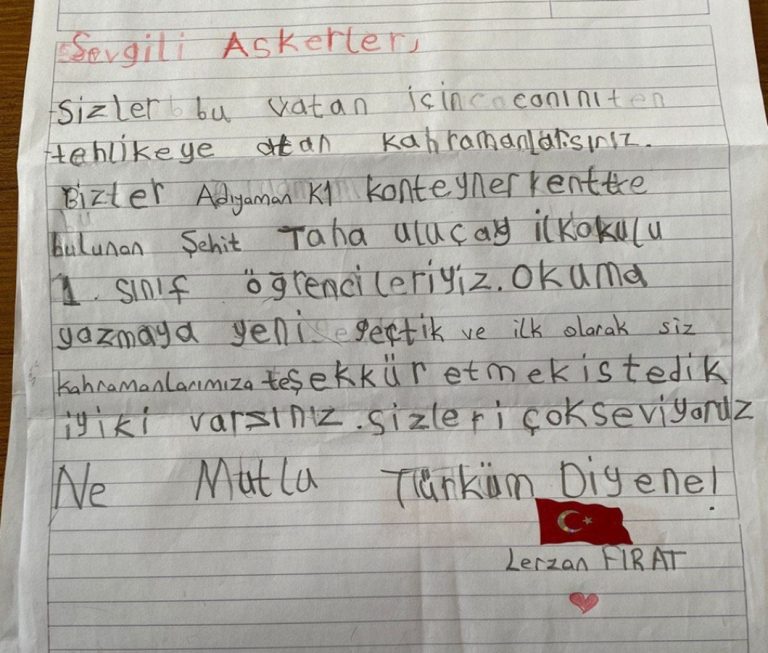 Sevgili Askerler,
Sizler bu vatan için canını
tehlikeye atan kahramanlarsınız.
Bizler Adıyaman K1 konteynerkentte
bulunan Şehit Taha uluçay ilkokulu
1. sınıf öğrencileriyiz. Okuma
yazmaya yeni geçtik ve ilk olarak siz
kahramanlarımıza teşekkür etmek istedik
iyiki varsınız. sizleri çok seviyoruz
Ne Mutlu Türküm Diyene!
Lerzan FIRAT